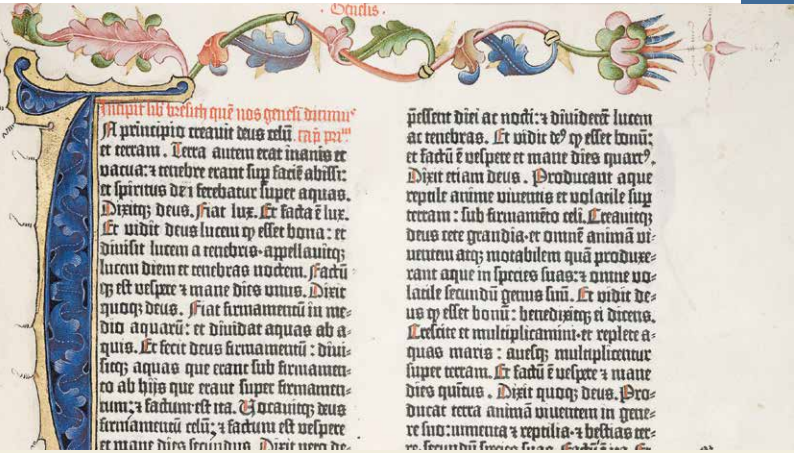 · Genesis ·
Incipit lib' bresith quē nos genesī dicimus
In principio creauit deus celū cap. prim.
et terram. Terra autem erat inanis et
vacua: ⁊ tenebre erant sup faciē abissi:
et spiritus dei ferebatur super aquas.
Dixitqꝫ deus. Fiat lux. Et facta ē lux.
Et vidit deus lucem ꝙ esset bona: et
diuisit lucem a tenebris· appellauitqꝫ
lucem diem et tenebras noctem. Factū
qꝫ est vespere ⁊ mane dies vnus. Dixit
quoqꝫ deus. Fiat firmamentū in me-
dio aquarū: et diuidat aquas ab a-
quis. Et fecit deus firmamentū: diui-
sitqꝫ aquas que erant sub firmamen-
to ab hijs que erant super firmamen-
tum: ⁊ factum est ita. Vocauitqꝫ deus
firmamentū celū: ⁊ factum est vespere
et mane dies secundus. Dixit vero de-
pessent diei ac nocti: ⁊ diuiderēt lucem
ac tenebras. Et vidit deꝰ ꝙ esset bonū:
et factū ē vespere et mane dies quartꝰ.
Dixit etiam deus. Producant aque
reptile anime viuentis et volatile sup
terram: sub firmamēto celi. Creauitqꝫ
deus cete grandia· et omnē animā vi-
uentem atqꝫ motabilem quā produxe-
rant aque in species suas: ⁊ omne vo-
latile secundū genus suū. Et vidit de-
us ꝙ esset bonū: benedixitqꝫ ei dicens.
Crescite et multiplicamini· et replete a-
quas maris: auesqꝫ multiplicentur
super terram. Et factū ē vespere ⁊ mane
dies quītus. Dixit quoqꝫ deus. Pro-
ducat terra animā viuentem in gene-
re suo: iumenta ⁊ reptilia· ⁊ bestias ter-
re· secundū species suas. Factū ē ita. Et